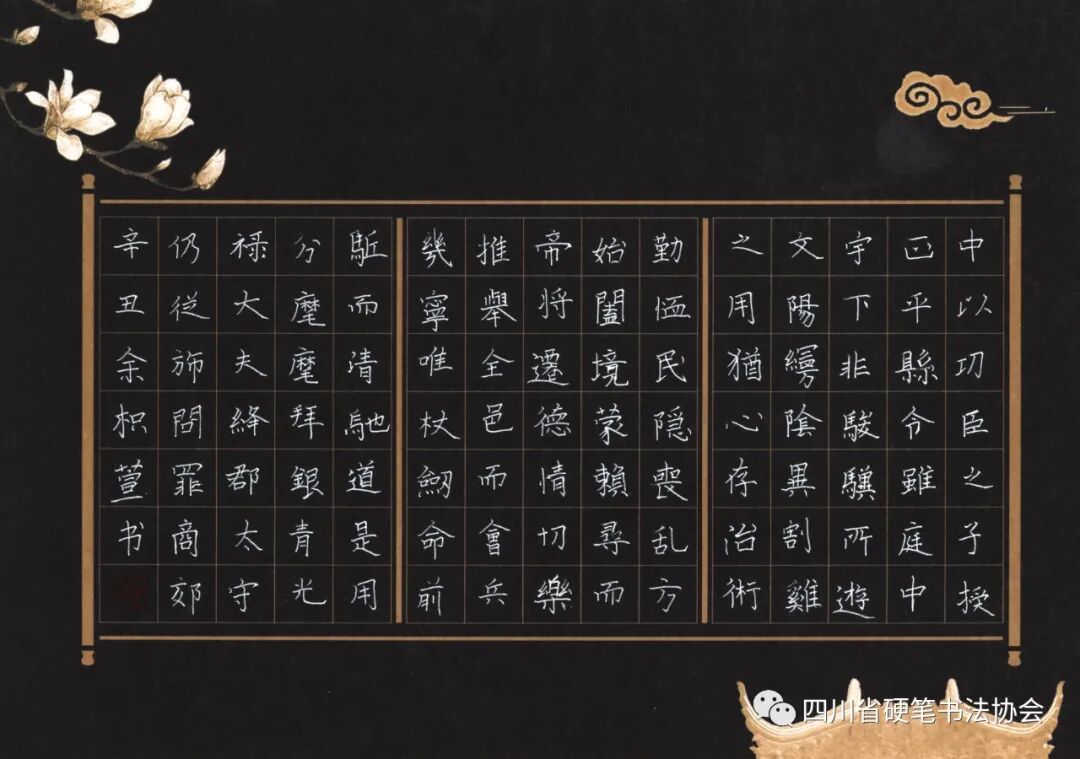 中以功臣之子授
正平縣令雖庭中
宇下非駿驥所遊
文陽縵陰異割雞
之用猶心存治術
勤恤民隱喪乱方
始闔境蒙賴尋而
帝将遷德情切樂
推舉全邑而會兵
幾寧唯杖劒命前
駈而清馳道是用
分麾麾拜銀青光
禄大夫絳郡太守
仍從斾問罪商郊
辛丑余枳萱书
四川省硬笔书法协会